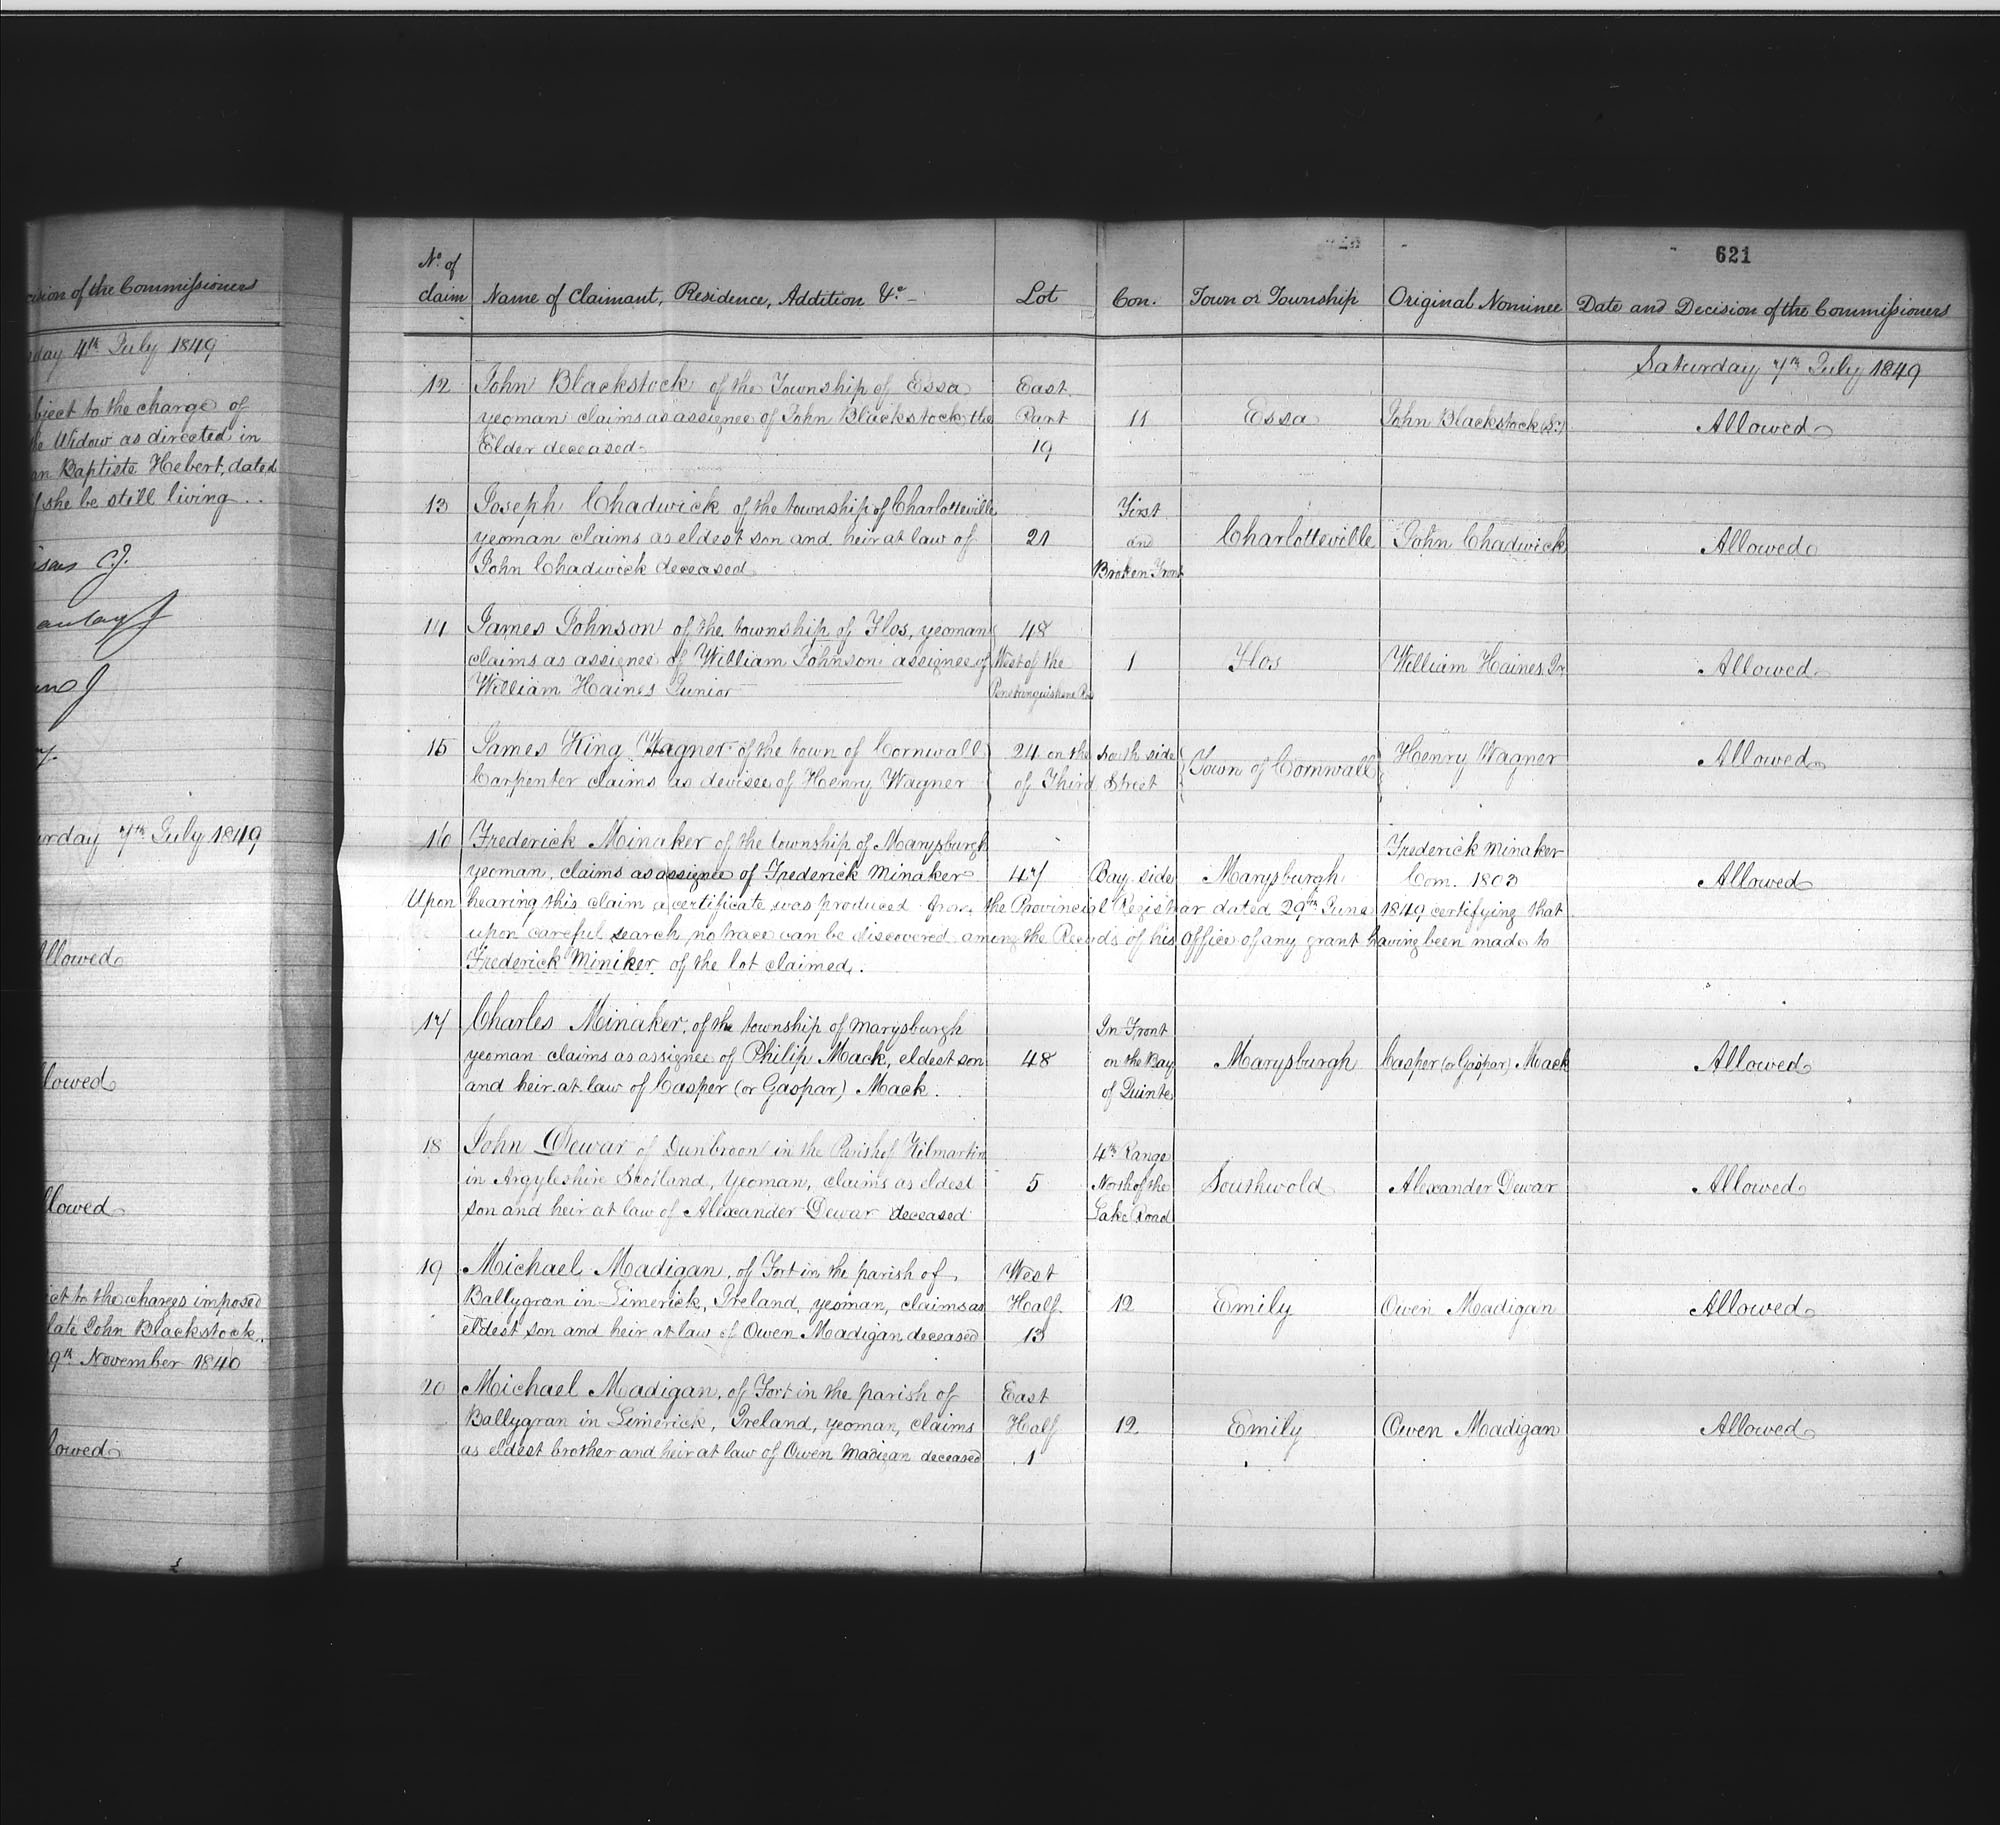 cision of the Commissioners
day 4th July 1849
bject to the charge of
he Widow as directed in
an Baptiste Hebert, dated
f she be still living
C.J.
J
J
urday 7th July 1849
Allowed
llowed
llowed
ect to the charges imposed
late John Blackstock.
9th November 1840
lowed
621
No. of
claim Name of Claimant, Residence, Addition &c. Lot Con. Town or Township Original Nominee Date and Decision of the Commissioners
Saturday 7th July 1849
12 John Blackstock of the Township of Essa East
yeoman claims as assignee of John Blackstock the Part 11 Essa John Blackstock (Sr.) Allowed
Elder deceased 19
13 Joseph Chadwick of the township of Charlotteville First
yeoman claims as eldest son and heir at law of 21 and Charlotteville John Chadwick Allowed
John Chadwick deceased Broken Front
14 James Johnson of the township of Flos, yeoman 48
claims as assignee of William Johnson assignee of West of the 1 Flos William Haines Jr. Allowed
William Haines Junior Penetanguishene Rd
15 James King Wagner of the town of Cornwall 24 on the South side Town of Cornwall Henry Wagner Allowed
Carpenter claims as devisee of Henry Wagner of Third Street
16 Frederick Minaker of the township of Marysburgh Frederick Minaker
yeoman, claims as assignee of Frederick Minaker 47 Bay side Marysburgh Com. 1803 Allowed
Upon hearing this claim a certificate was produced from the Provincial Registrar dated 29th June 1849 certifying that
upon careful search no trace can be discovered among the Records of his Office of any grant having been made to
Frederick Miniker of the lot claimed.
17 Charles Minaker, of the township of Marysburgh In Front
yeoman claims as assignee of Philip Mack, eldest son 48 on the Bay Marysburgh Casper (or Gaspar) Mack Allowed
and heir at law of Casper (or Gaspar) Mack. of Quinte
18 John Dewar of Dunbroon in the Parish of Kilmartin 4th Range
in Argyleshire Scotland, Yeoman, claims as eldest 5 North of the Southwold Alexander Dewar Allowed
son and heir at law of Alexander Dewar deceased Lake Road
19 Michael Madigan, of Fort in the parish of West
Ballygran in Limerick, Ireland, yeoman, claims as Half 12 Emily Owen Madigan Allowed
eldest son and heir at law of Owen Madigan deceased 13
20 Michael Madigan, of Fort in the parish of East
Ballygran in Limerick, Ireland, yeoman, claims Half 12 Emily Owen Madigan Allowed
as eldest brother and heir at law of Owen Madigan deceased 1